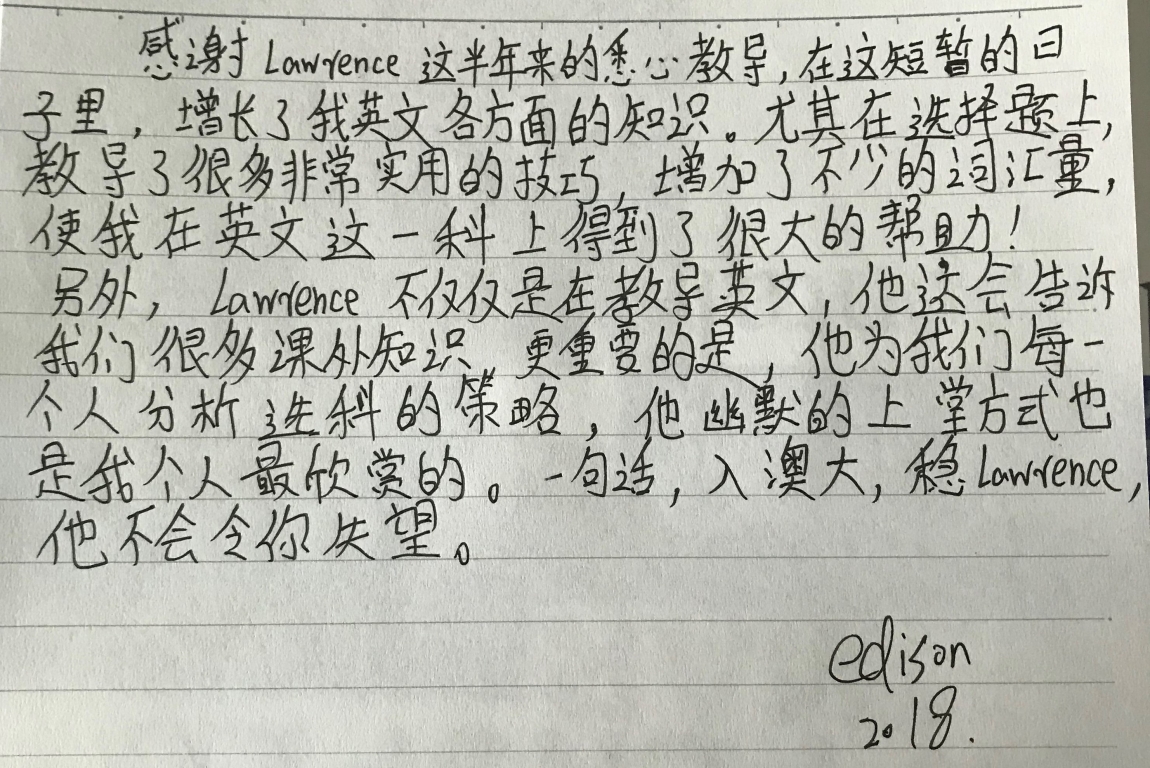 感谢Lawrence这半年来的悉心教导,在这短暂的日
子里,增长了我英文各方面的知识。尤其在选择题上,
教导了很多非常实用的技巧,增加了不少的词汇量,
使我在英文这一科上得到了很大的帮助!
另外,Lawrence不仅仅是在教导英文,他还会告诉
我们很多课外知识 更重要的是,他为我们每一
个人分析选科的策略,他幽默的上堂方式也
是我个人最欣赏的。一句话,入澳大,稳Lawrence,
他不会令你失望。
edison
2018.